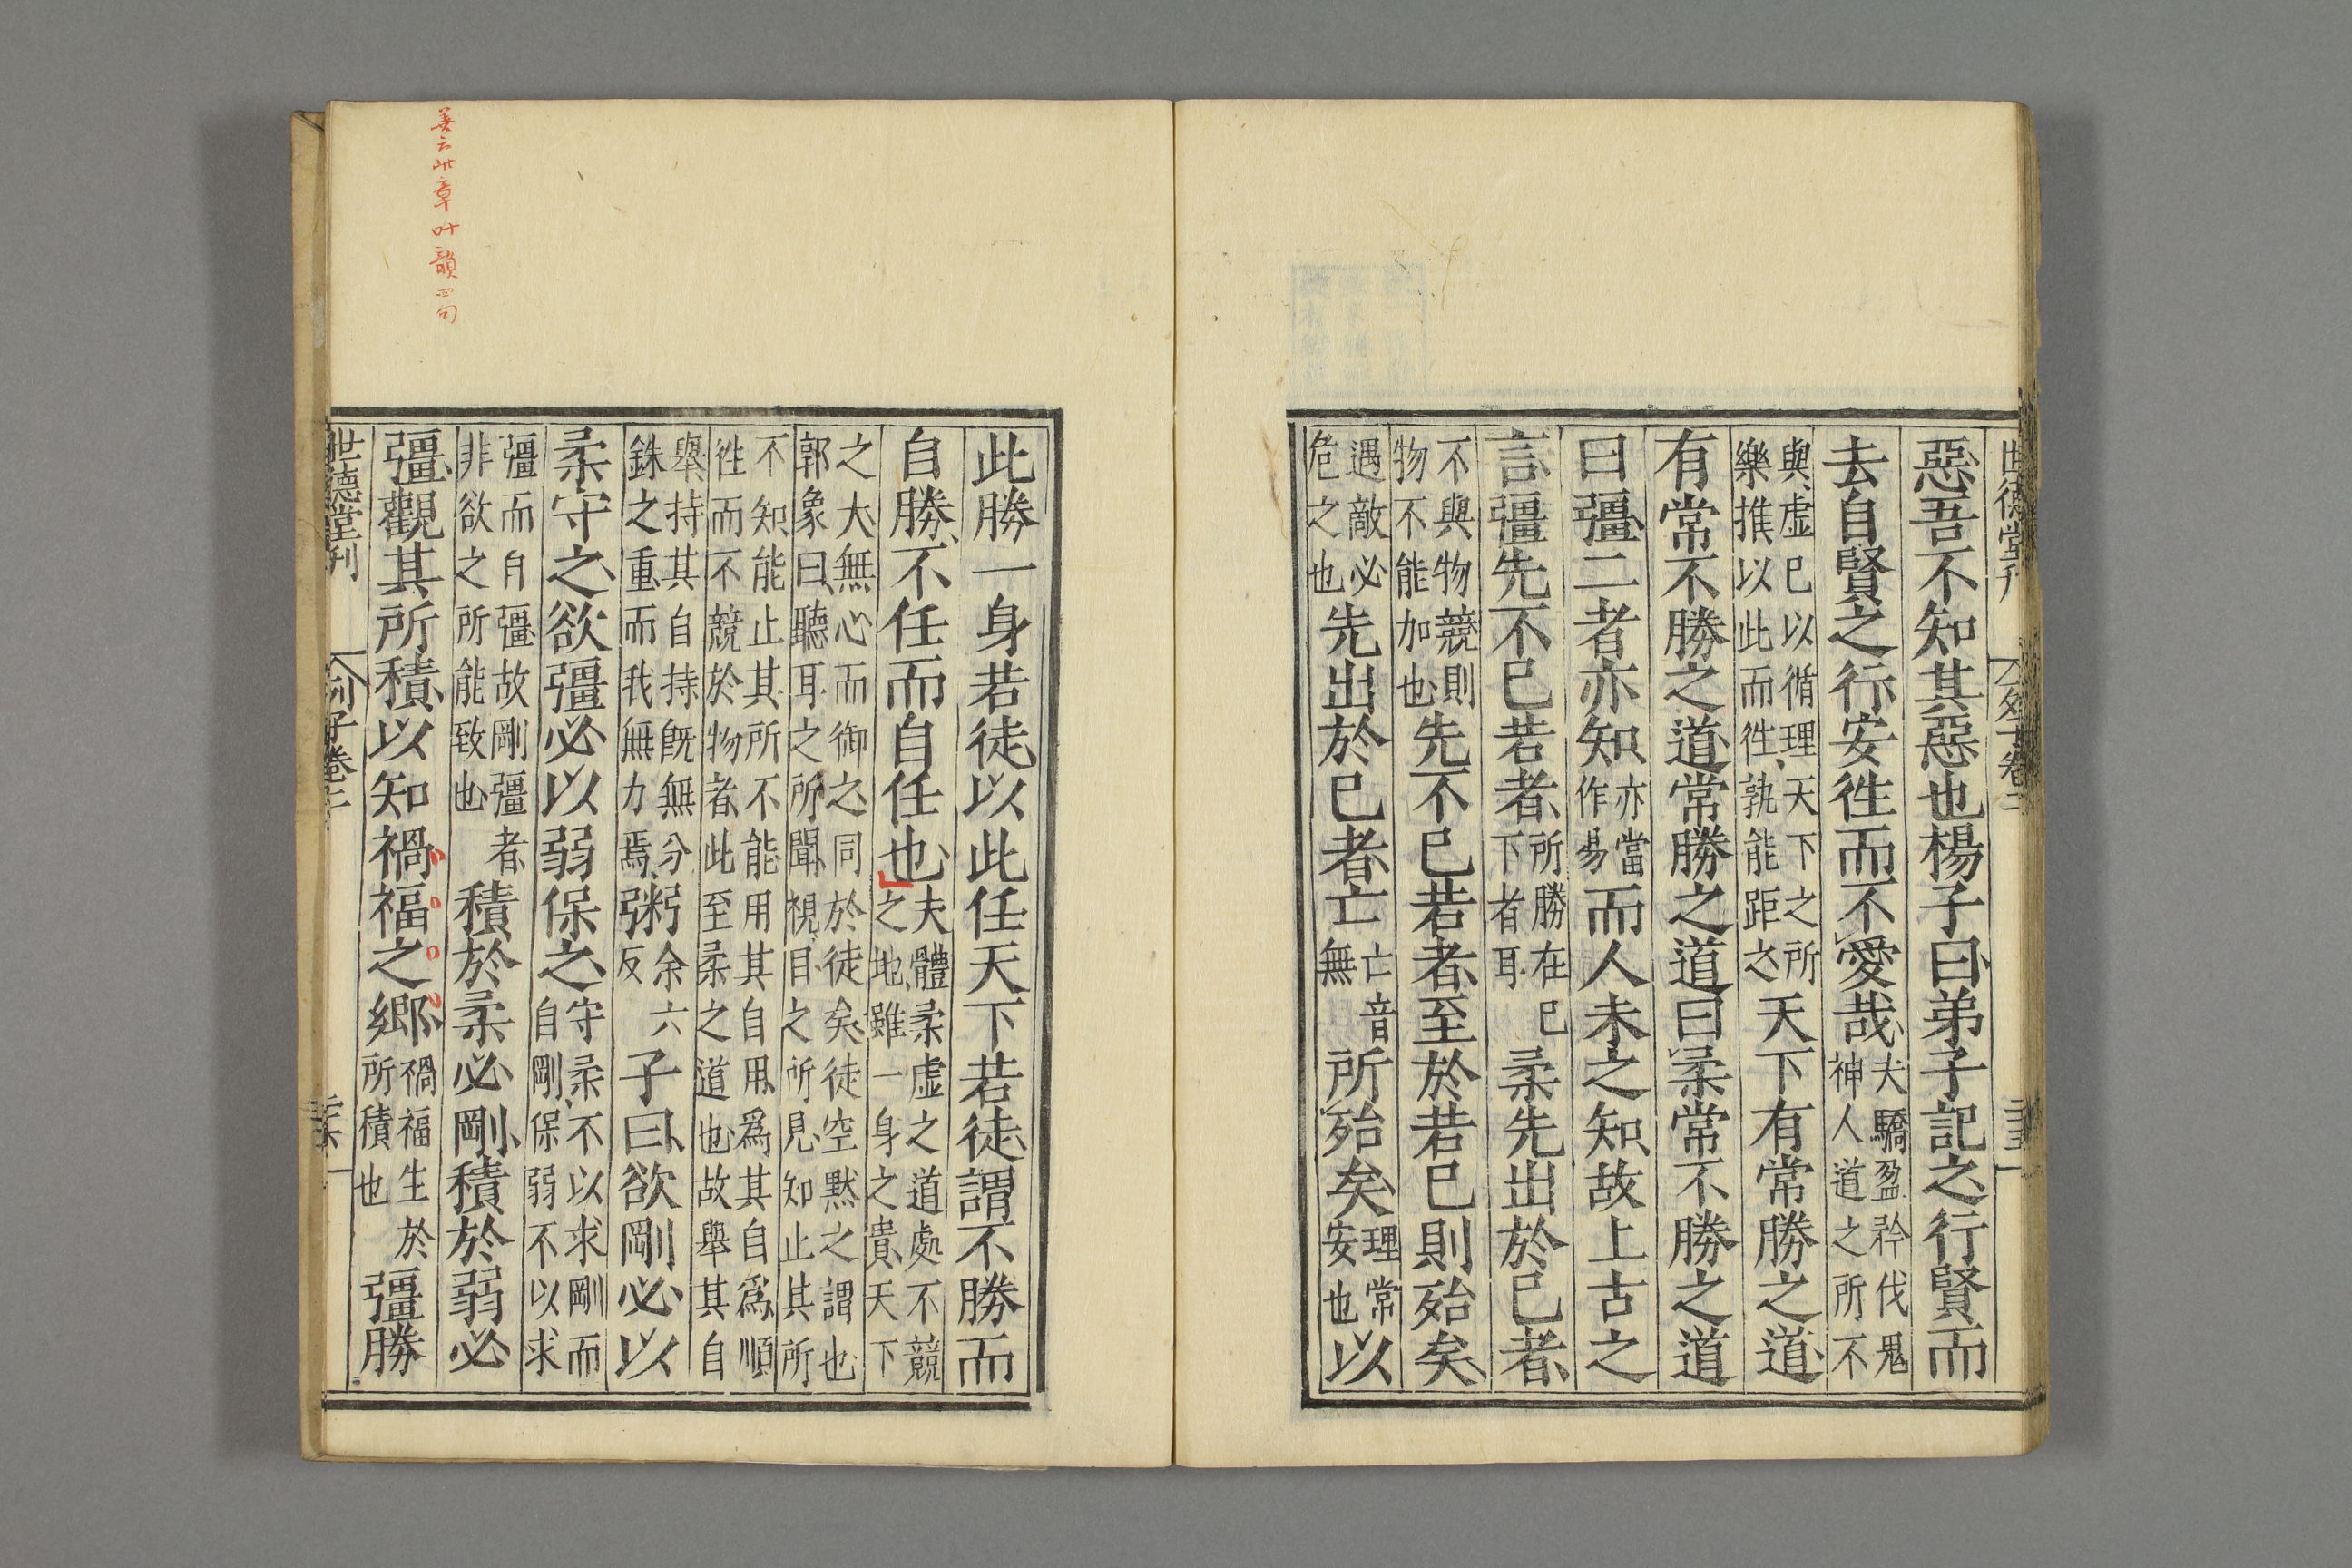 世德堂刊
卷二
惡吾不知其惡也楊子曰弟子記之行賢而
去自賢之行安徃而不愛哉夫驕盈矜伐鬼神人道之所不
與虛已以循理天下之所樂推以此而徃孰能距之天下有常勝之道
有常不勝之道常勝之道曰柔常不勝之道
曰彊二者亦知亦當作易而人未之知故上古之
言彊先不已若者所勝在已下者耳柔先出於已者
不與物競則物不能加也先不已若者至於若已則殆矣
遇敵必危之也先出於已者亡亡音無所殆矣理常安也以
此勝一身若徒以此任天下若徒謂不勝而
自勝不任而自任也夫體柔虛之道處不競之地雖一身之貴天下
之大無心而御之同於徒矣徒空默之謂也郭象曰聽耳之所聞視目之所見知止其所
不知能止其所不能用其自用爲其自爲順徃而不競於物者此至柔之道也故舉其自
舉持其自持旣無分銖之重而我無力焉粥余六反子曰欲剛必以
柔守之欲彊必以弱保之守柔不以求剛而自剛保弱不以求
彊而自彊故剛彊者非欲之所能致也積於柔必剛積於弱必
彊觀其所積以知禍福之鄉禍福生於所積也彊勝
世德堂刊
列子卷二
二十六
善云此章叶韻四句